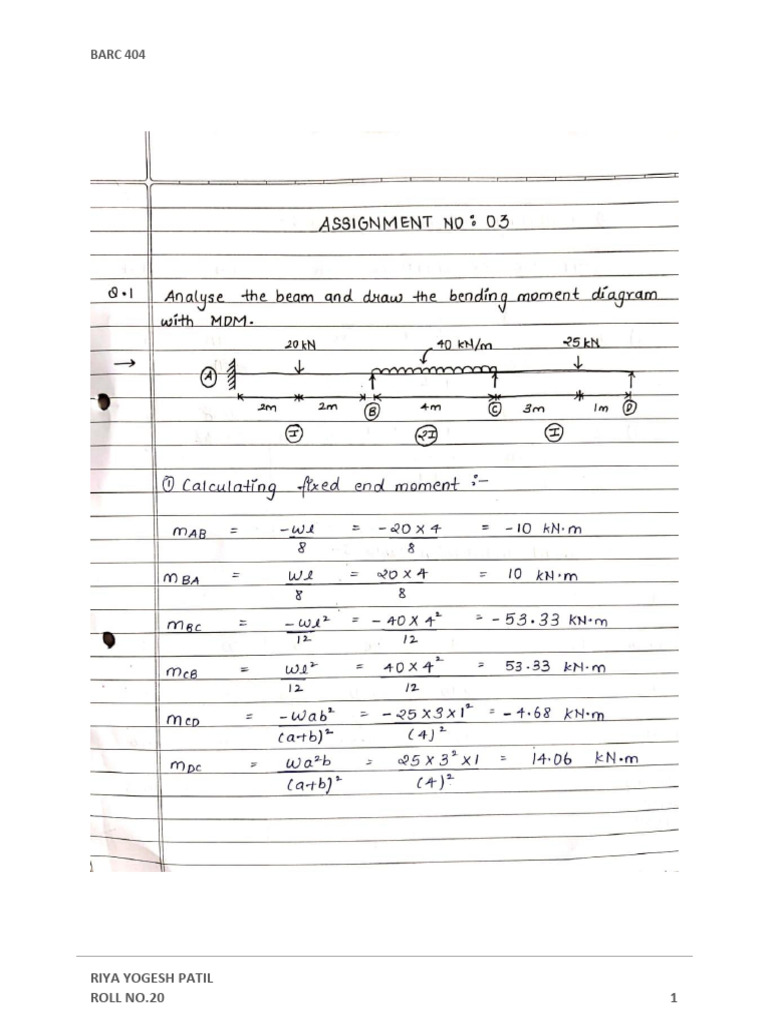 BARC 404
ASSIGNMENT NO: 03
Q.1 Analyse the beam and draw the bending moment diagram
with MDM.
→ 20 kN 40 kN/m 25 kN
A
2m 2m B 4m C 3m 1m D
I 2I I
① Calculating fixed end moment :-
mAB = -wl/8 = -20 × 4/8 = -10 kN·m
mBA = wl/8 = 20 × 4/8 = 10 kN·m
mBC = -wl²/12 = -40 × 4²/12 = -53.33 kN·m
mCB = wl²/12 = 40 × 4²/12 = 53.33 kN·m
mCD = -wab²/(a+b)² = -25 × 3 × 1²/(4)² = -4.68 kN·m
mDC = wa²b/(a+b)² = 25 × 3² × 1/(4)² = 14.06 kN·m
RIYA YOGESH PATIL
ROLL NO.20 1